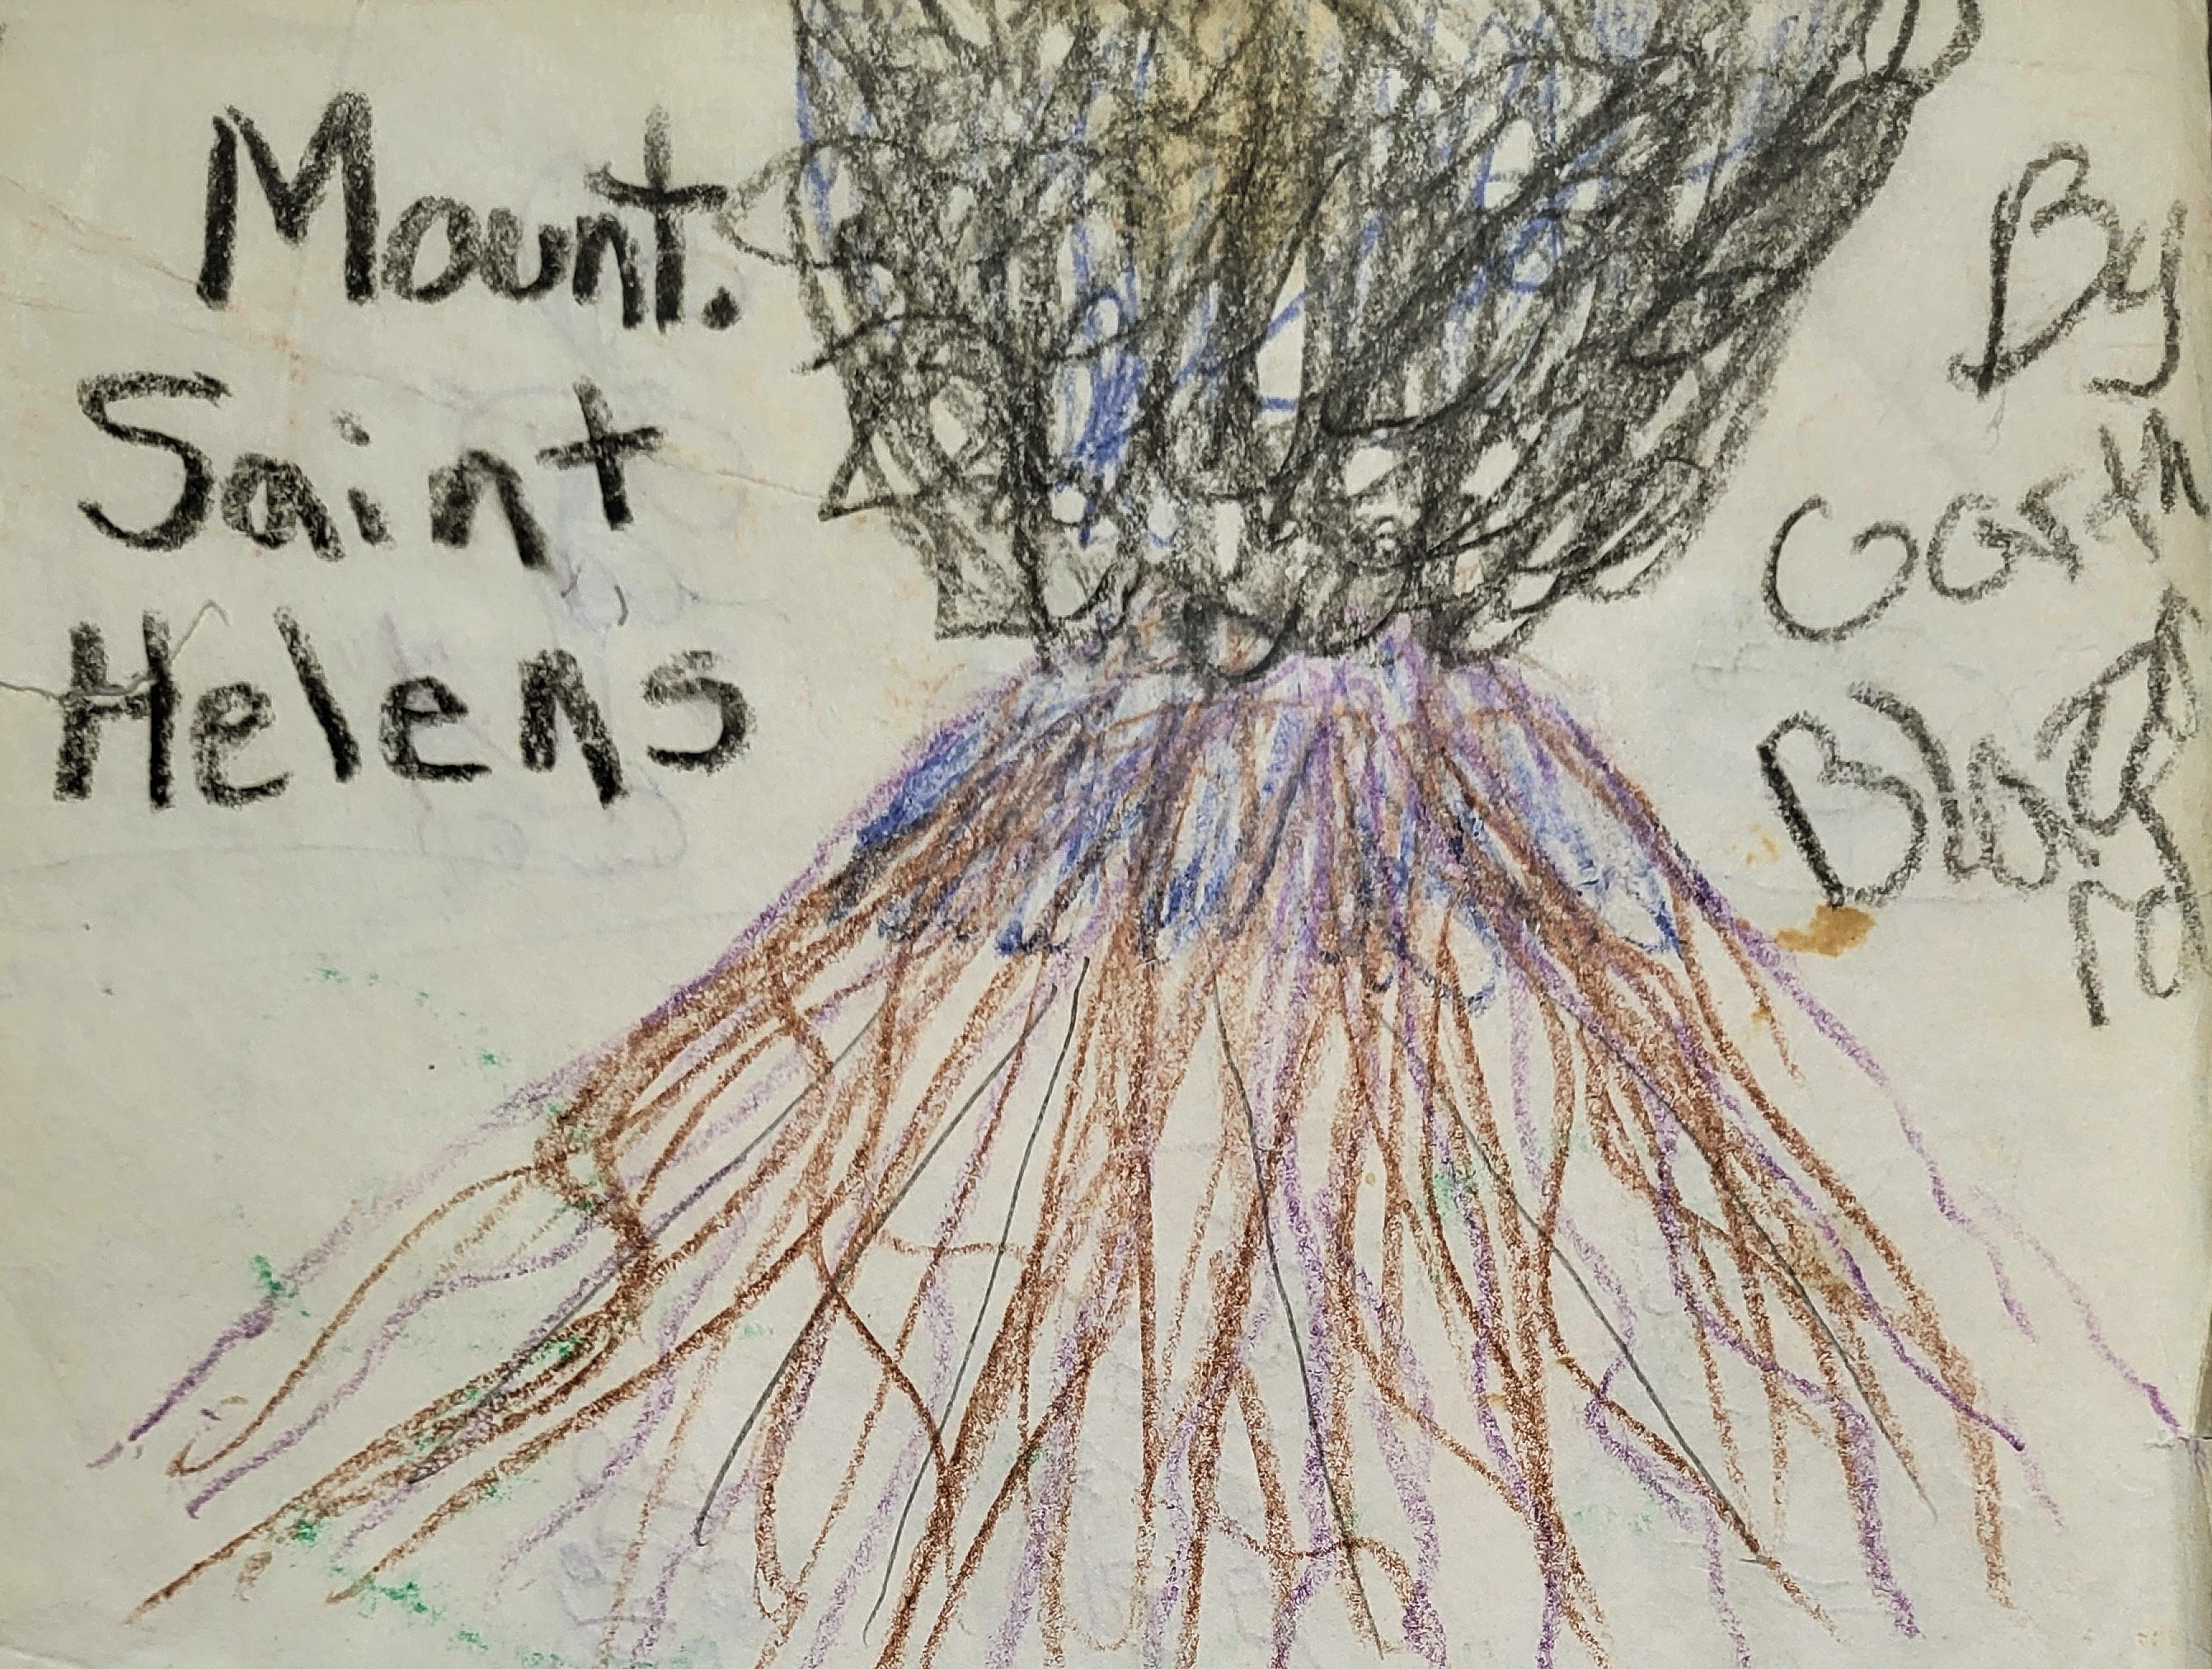 Mount.
Saint
Helens
By
Garth